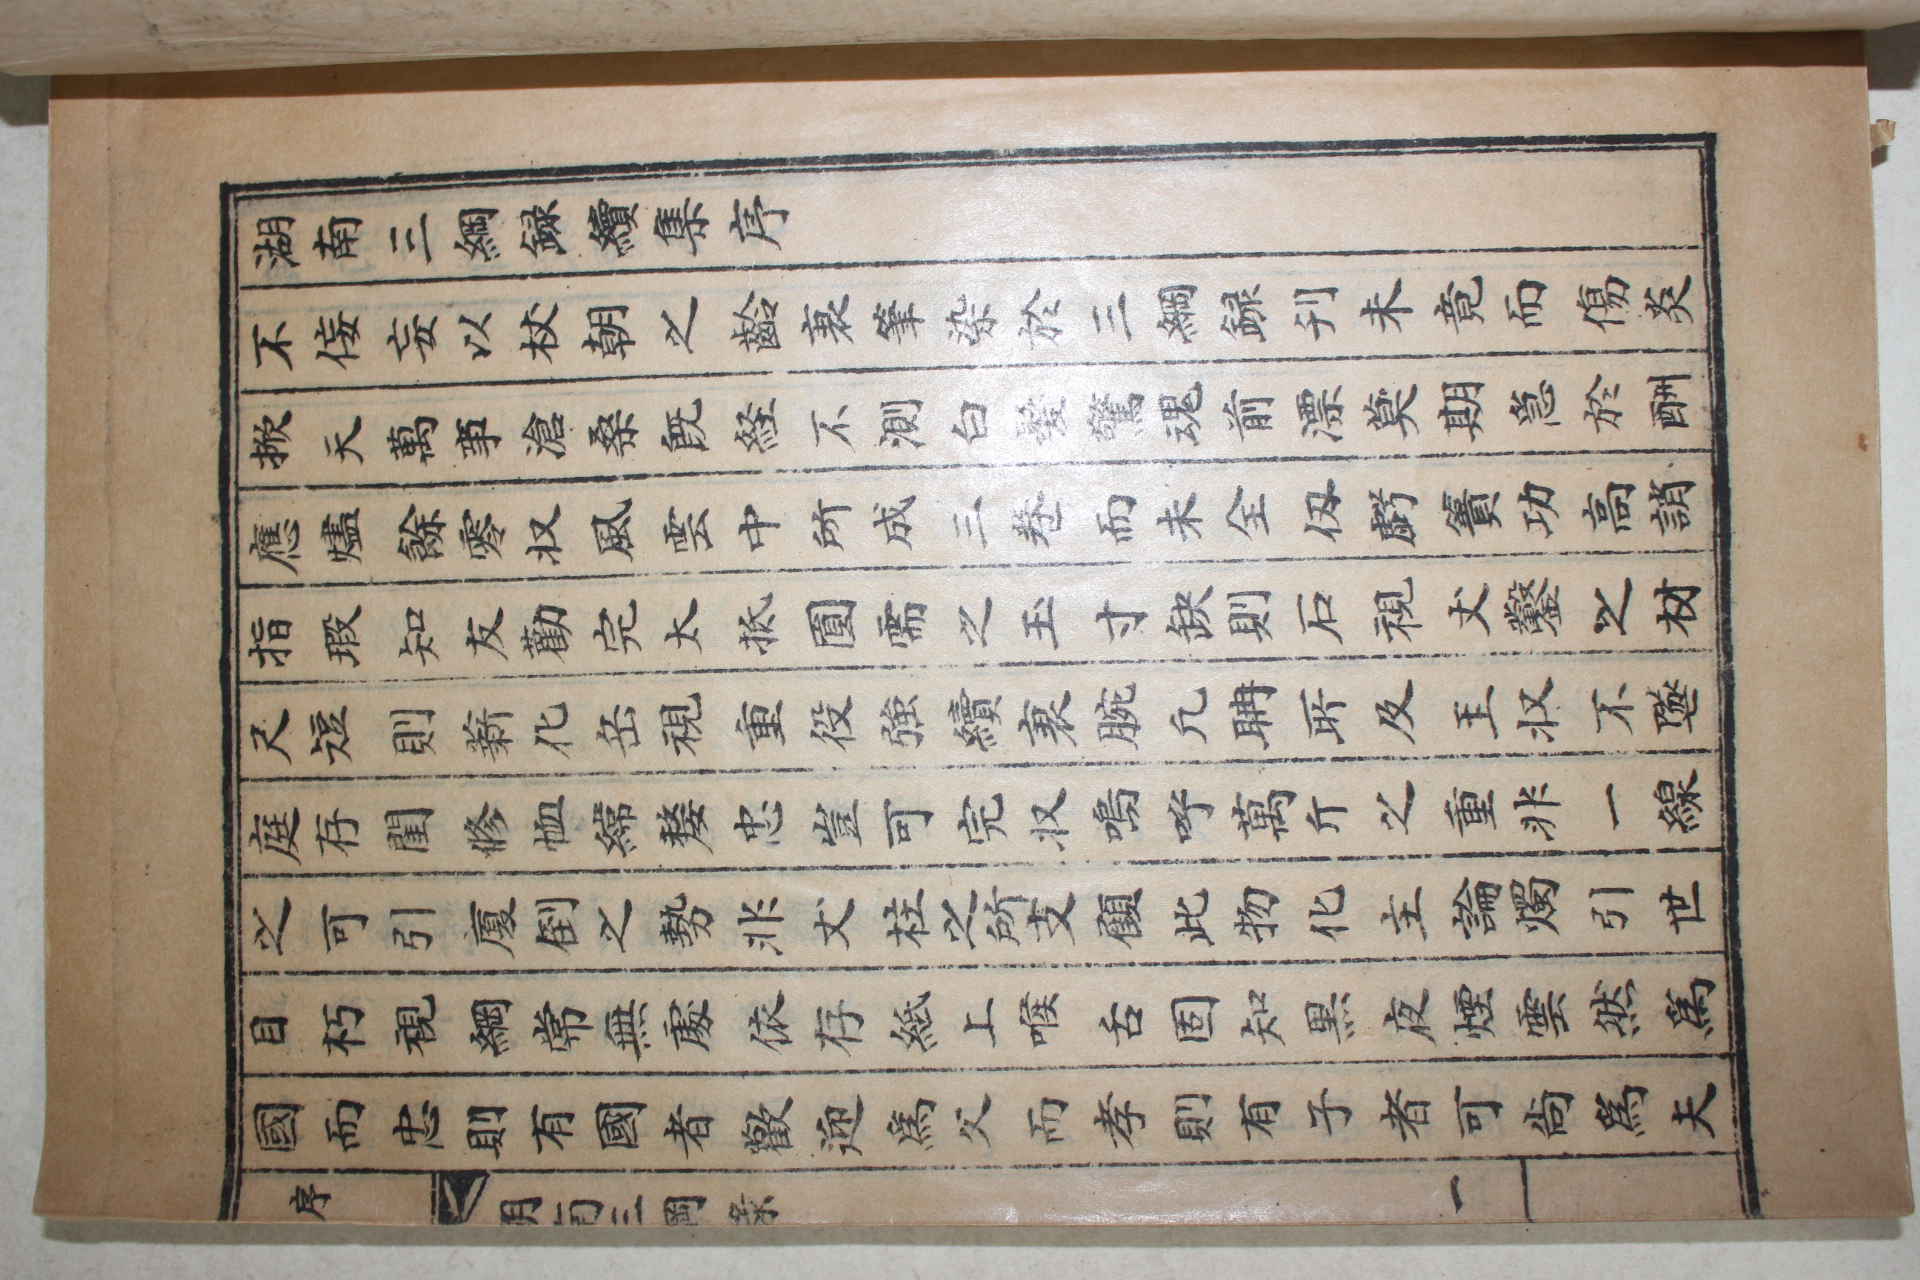 湖南三綱録續集序
不侫妄以杖朝之齡裹筆染於三綱録刋未竟而傷炎
掀天萬事滄桑既経不測白髮驚魂前漂莫期急於酬
應燼餘零収風雲中所成三卷而未全仭虧簣功高誚
指瑕知友勸完太抵圓需之玉寸缺則石視丈鑿之材
尺短則薪化岳視重役強續裹腕凢聃所及王収不墜
庭存閨修恤緯嫠忠豈可完収嗚呼萬斤之重非一線
之可引廈倒之勢非丈柱之所支顧此物化主論燭引世
目朽視綱常無處依存紙上喉舌固知黒夜煙雲然爲
國而忠則有國者歡迎爲父而孝則有子者可尙爲夫
序
湖南三綱录
一